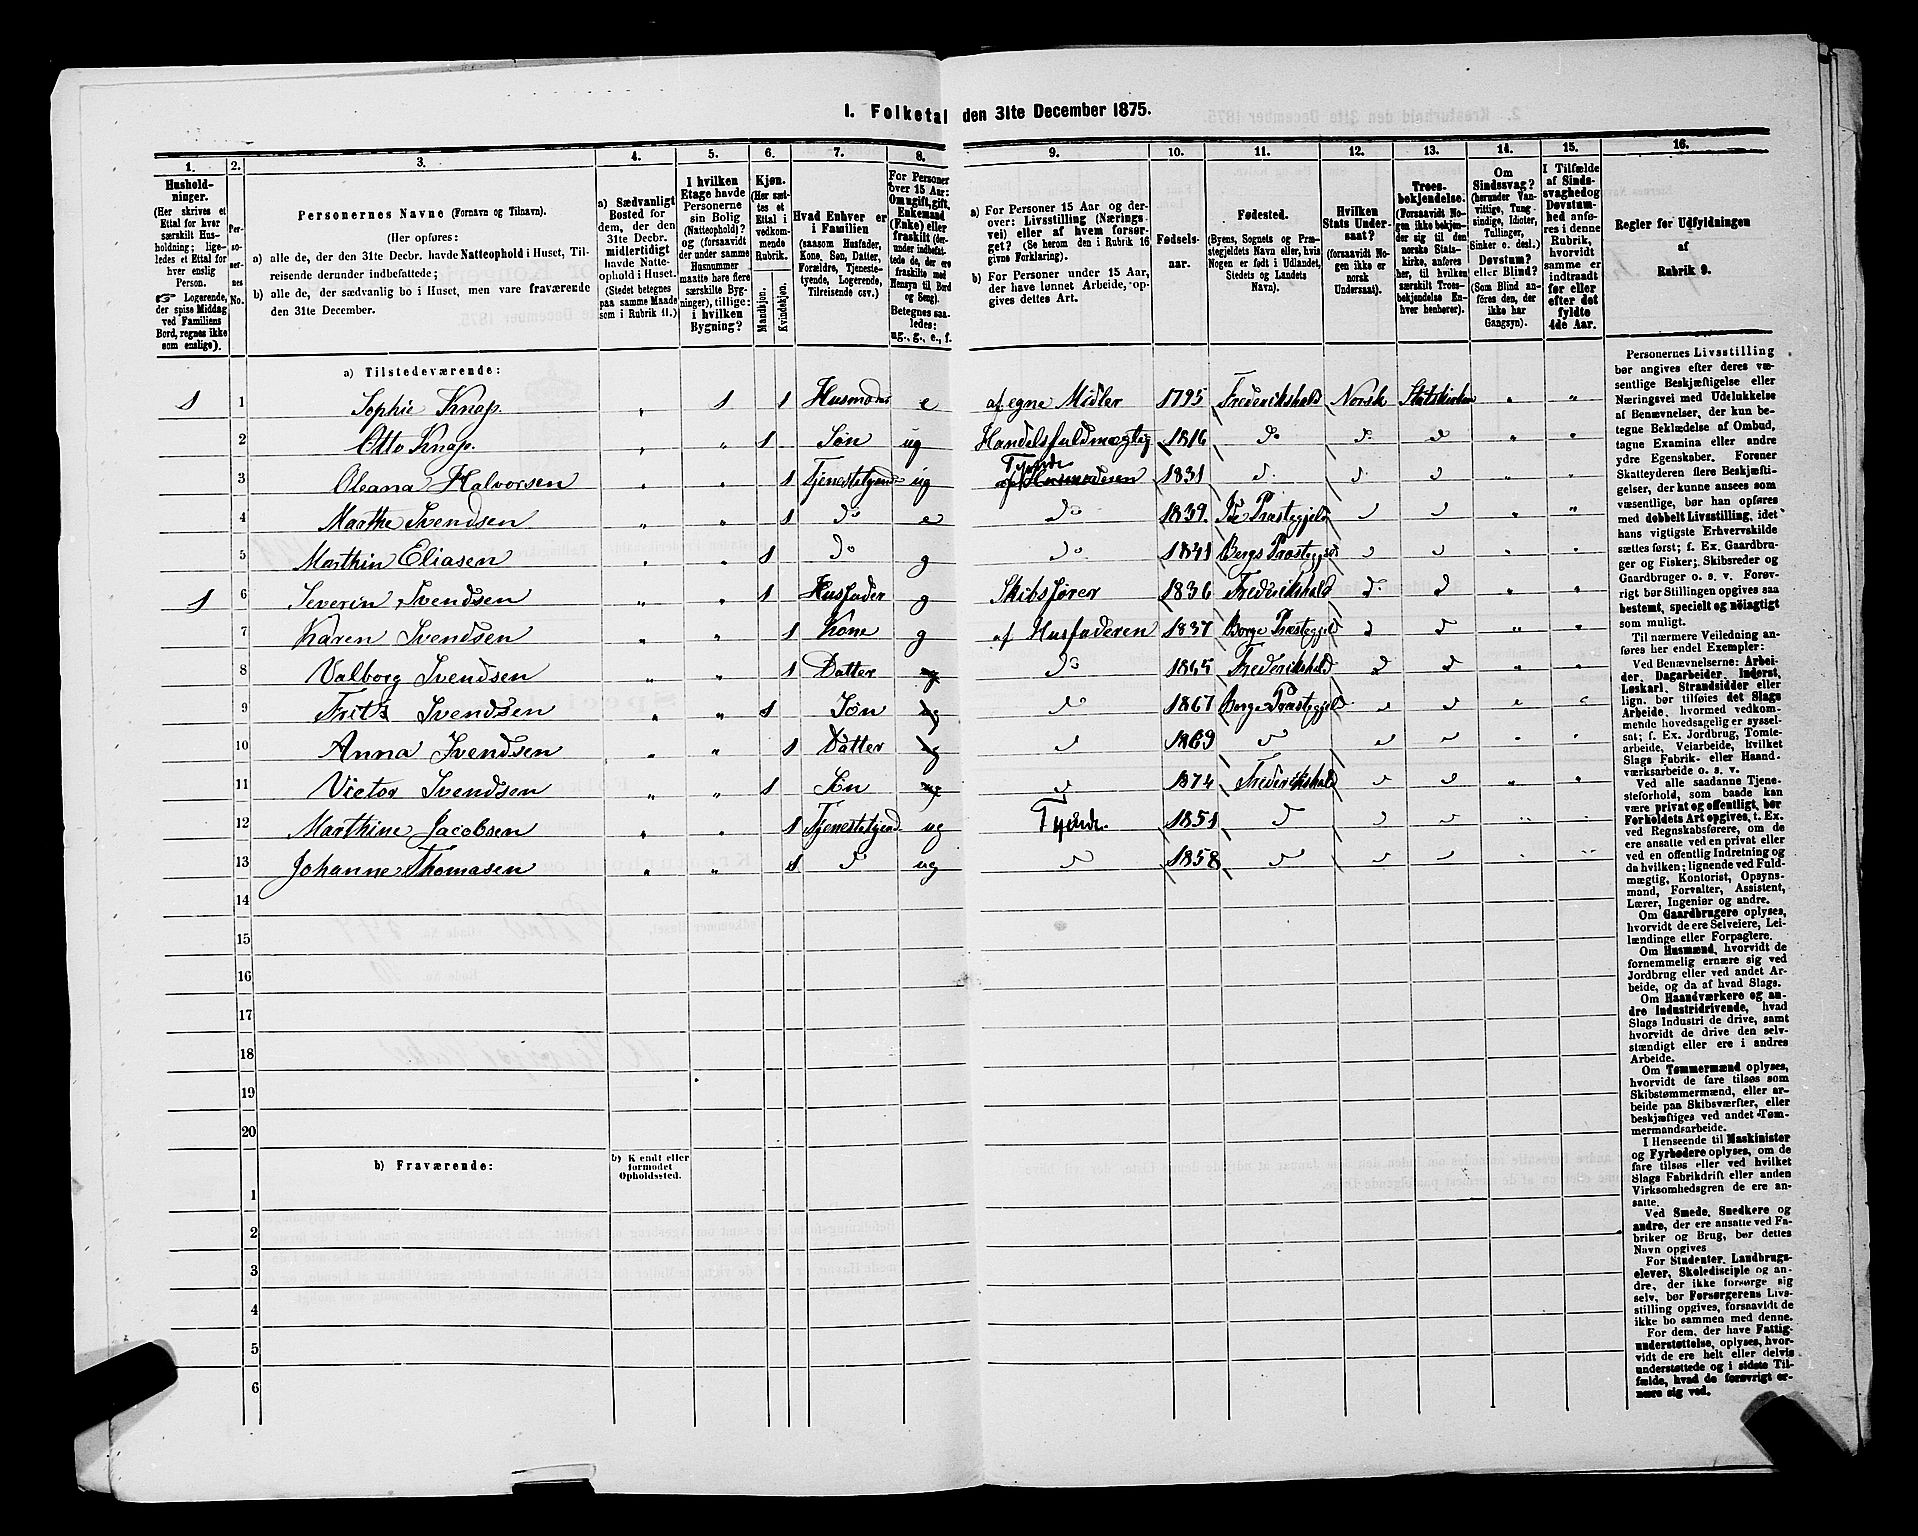 I. Folketal den 31te December 1875.
1. 2. 3. 4. 5. 6. 7. 8. 9. 10. 11. 12. 13. 14. 15. 16.
Husholdninger.
(Her skrives et Ettal for hver særskilt Husholdning; ligeledes et Ettal for hver enslig Person.
☞ Logerende, der spise Middag ved Familiens Bord, regnes ikke som enslige).
Personernes No.
Personernes Navne (Fornavn og Tilnavn).
(Her opføres:
a) alle de, der den 31te Decbr. havde Natteophold i Huset, Tilreisende derunder indbefattede;
b) alle de, der sædvanlig bo i Huset, men vare fraværende den 31te December.
a) Sædvanligt Bosted for dem, der den 31te Decbr. midlertidigt havde Natteophold i Huset. (Stedet betegnes paa samme Maade som i Rubrik 11.)
I hvilken Etage havde Personerne sin Bolig (Natteophold)? og (forsaavidt der under samme Husnummer maatte høre flere særskilte Bygninger), tillige: i hvilken Bygning?
Kjøn. (Her sættes et Ettal i vedkommende Rubrik.
Mandkjøn. Kvindekjøn.
Hvad Enhver er i Familien
(saasom Husfader, Kone, Søn, Datter, Forældre, Tjenestetyende, Logerende, Tilreisende osv.)
For Personer over 15 Aar: Om ugift, gift, Enkemand (Enke) eller fraskilt (derunder indbefattede de, der ere fraskilte med Hensyn til Bord og Seng). Betegnes saaledes: ug., g., e., f.
a) For Personer 15 Aar og derover: Livsstilling (Næringsvei) eller af hvem forsørget? (Se herom den i Rubrik 16 givne Forklaring).
b) For Personer under 15 Aar, der have lønnet Arbeide, opgives dettes Art.
Fødselsaar.
Fødested.
(Byens, Sognets og Præstegjeldets Navn eller, hvis Nogen er født i Udlandet, Stedets og Landets Navn).
Hvilken Stats Undersaat?
(forsaavidt Nogen ikke er norsk Undersaat).
Troesbekjendelse.
(Forsaavidt Nogen ikke bekjender sig til den norske Statskirke, anføres her, til hvilken særskilt Troesbekjendelse Enhver henhører).
Om Sindssvag? (herunder Vanvittige, Tungsindige, Idioter, Tullinger, Sinker o. desl.). Døvstum? eller Blind? (Som Blind anføres den, der ikke har Gangsyn).
I Tilfælde af Sindssvaghed og Døvstumhed anføres i denne Rubrik, hvorvidt samme er indtraadt før eller efter det fyldte 4de Aar.
Regler for Udfyldningen af Rubrik 9.
a) Tilstedeværende:
1 1 Sophie Knap. „ 1 1 Husmoder e af egne Midler 1795 Frederikshald Norsk Statskirken „ „
2 Otto Knap. „ „ 1 Søn ug Handelsfuldmægtig 1816 do d. d „ „
3 Oleana Halvorsen „ „ 1 Tjenestetyende ug Tyende af Husmoderen 1831 d. d. d „ „
4 Marthe Svendsen „ „ 1 do e do 1839. Ide Præstegjeld d d „ „
5 Marthin Eliasen „ „ 1 do g do 1841 Bergs Præstegjeld d d „ „
1 6 Severin Svendsen „ „ 1 Husfader g Skibsfører 1836 Frederikshald d. d „ „
7 Karen Svendsen „ „ 1 Kone g af Husfaderen 1837 Borge Præstegjeld d d „ „
8 Valborg Svendsen „ „ 1 Datter ug do 1865 Frederikshald d d „ „
9 Fritz Svendsen „ „ 1 Søn ug do 1867 Borge Præstegjeld d d „ „
10 Anna Svendsen „ „ 1 Datter ug d 1869 d d d „ „
11 Victor Svendsen „ „ 1 Søn ug d 1874 Frederikshald d d „ „
12 Marthine Jacobsen „ „ 1 Tjenestetyend ug Tyende. 1851 d d d „ „
13 Johanne Thomasen „ „ 1 do ug d 1858 d d d „ „
14
15
16
17
18
19
20
b) Fraværende: b) Kjendt eller formodet Opholdssted.
1
2
3
4
5
6
Personernes Livsstilling
bør angives efter deres væ-
sentlige Beskjæftigelse eller
Næringsvei med Udelukkelse
af Benævnelser, der kun be-
tegne Beklædelse af Ombud,
tagne Examina eller andre
ydre Egenskaber. Forener
Skatteyderen flere Beskjæfti-
gelser, der kunne ansees som
væsentlige, bør han opføres
med dobbelt Livsstilling, idet
hans vigtigste Erhvervskilde
sættes først; f. Ex. Gaardbru-
ger og Fisker; Skibsreder og
Gaardbruger o. s. v. Forøv-
rigt bør Stillingen opgives saa
bestemt, specielt og nöiagtigt
som muligt.
Til nærmere Veiledning an-
føres her endel Exempler:
Ved Benævnelserne: Arbei-
der, Dagarbeider, Inderst,
Løskarl, Strandsidder eller
lign. bør tilføies det Slags
Arbeide, hvormed vedkom-
mende hovedsagelig er syssel-
sat; f. Ex. Jordbrug, Tomte-
arbeide, Veiarbeide, hvilket
Slags Fabrik- eller Haand-
værksarbeide o. s. v.
Ved alle saadanne Tjene-
steforhold, som baade kan
være privat og offentligt, bør
Forholdets Art opgives, t. Ex.
ved Regnskabsførere, om de
ere ansatte ved en privat eller
ved en offentlig Indretning og
da hvilken; lignende ved Fuld-
mægtig, Kontorist, Opsyns-
mand, Forvalter, Assistent,
Lærer, Ingeniør og andre.
Om Gaardbrugere oplyses,
hvorvidt de ere Selveiere, Lei-
lændinge eller Forpagtere.
Om Husmænd, hvorvidt de
fornemmelig ernære sig ved
Jordbrug eller ved andet Ar-
beide, og da af hvad Slags.
Om Haandværkere og an-
dre Industridrivende, hvad
Slags Industri de drive, samt
hvorvidt de drive den selv-
stændigt eller ere i andres
Arbeide.
Om Tømmermænd oplyses,
hvorvidt de fare tilsøs som
Skibstømmermænd, eller ar-
beide paa Skibsværfter, eller
beskjæftiges ved andet Tøm-
mermandsarbeide.
I Henseende til Maskinister
og Fyrbødere oplyses, om de
fare tilsøs eller ved hvilket
Slags Fabrikdrift eller anden
Virksomhedsgren de ere an-
satte.
Ved Smede, Snedkere og
andre, der ere ansatte ved Fa-
briker og Brug, bør dettes
Navn opgives
For Studenter, Landbrugs-
elever, Skoledisciple og an-
dre, der ikke forsørge sig
selv, bør Forsørgerens Livs-
stilling opgives, forsaavidt de
ikke bo sammen med denne.
For dem, der have Fattig-
understøttelse, oplyses, hvor-
vidt de ere helt eller delvis
understøttede og i sidste Til-
fælde, hvad de forøvrigt er-
nære sig ved.